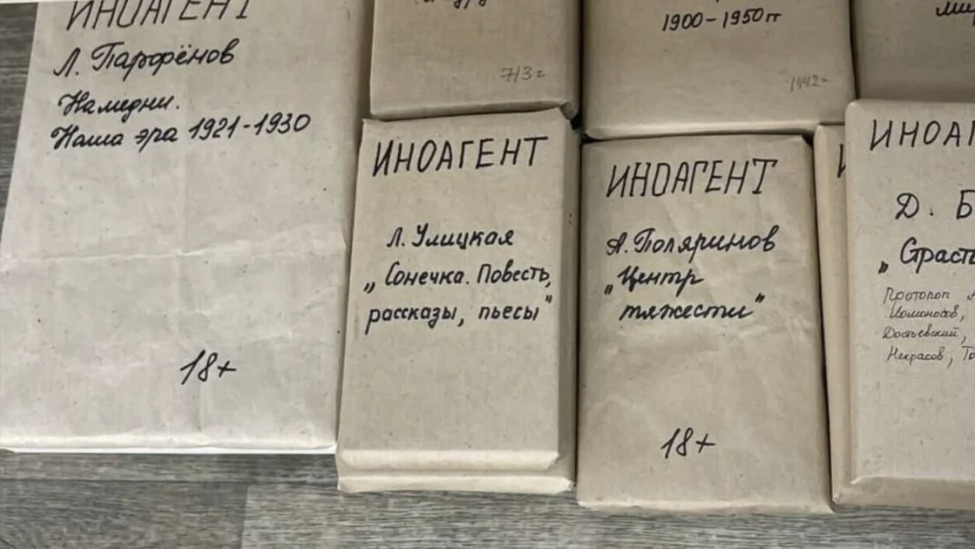 ИНОАГЕНТ
Л. Парфёнов
Намедни.
Наша эра 1921-1930
18+
713г
1900-1950гг
1442г
ИНОАГЕНТ
Л. Улицкая
„Сонечка. Повесть,
рассказы, пьесы"
ИНОАГЕНТ
А. Поляринов
„Центр
тяжести"
18+
ИНОАГ
Д. Б
„Страсть
Протопоп
Ломоносов,
Достоевский,
Некрасов, То